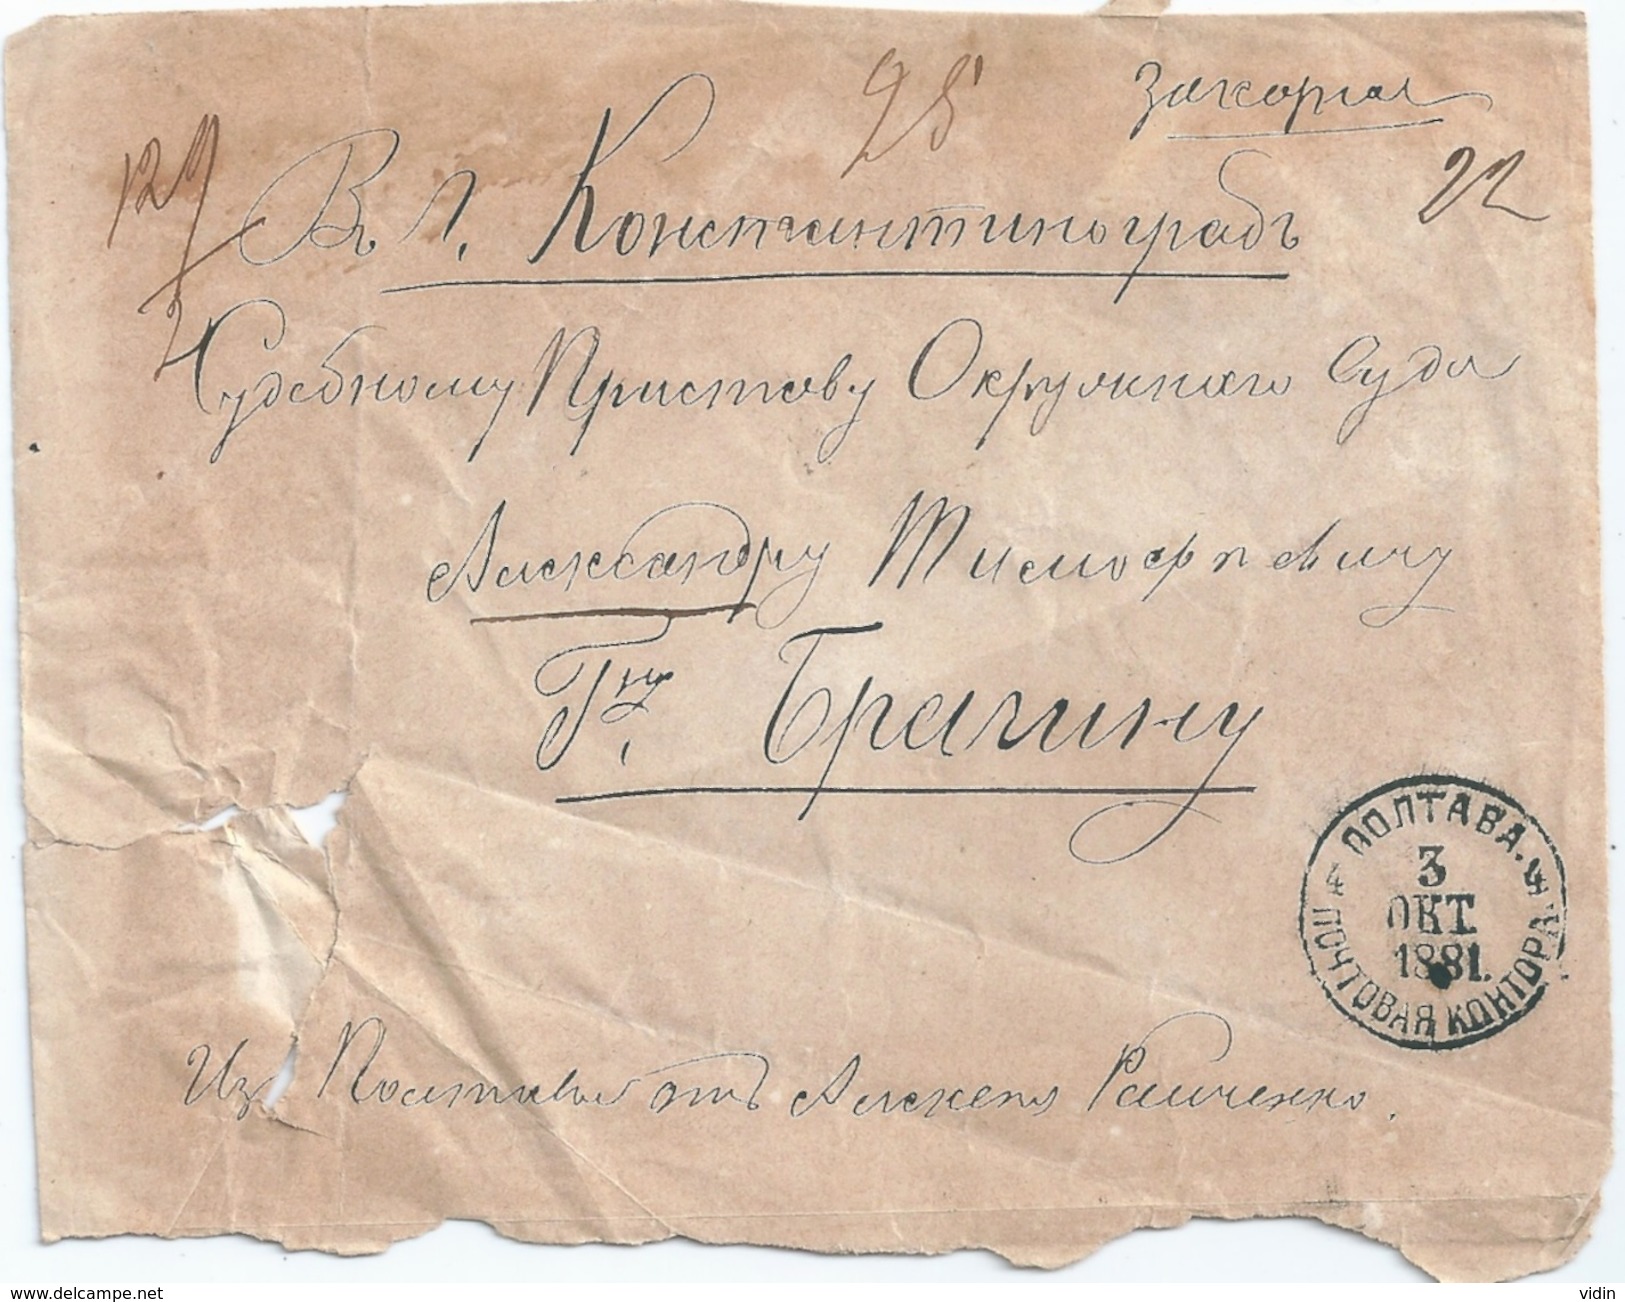 95
Заказное
129
22
Въ г. Константиноградъ
2
Судебному Приставу Окружнаго Суда
Александру Тимофѣевичу
Гну Брагину
ПОЛТАВА. 4
3
ОКТ
1881.
4 ПОЧТОВАЯ КОНТОРА
Из Полтавы отъ Алексея Райченко.
delcampe.net
vidin